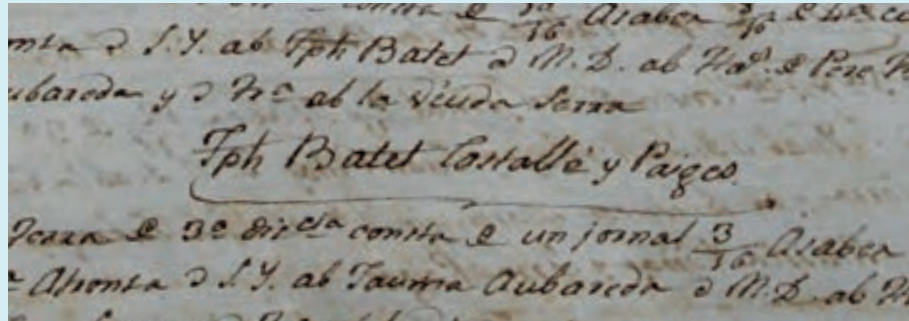 consta e 3/16 Asaber 3/16 e
onta d S.Y. ab Jph Batet d M.D. ab Had. e Pere
ubareda y d Tra ab la Viuda Serra
Jph Batet Costallé y Paiges
Terra e 3e diecta consta e un jornal 3/16 Asaber
a Afronta d S.Y. ab Jauma Aubareda d M.D. ab